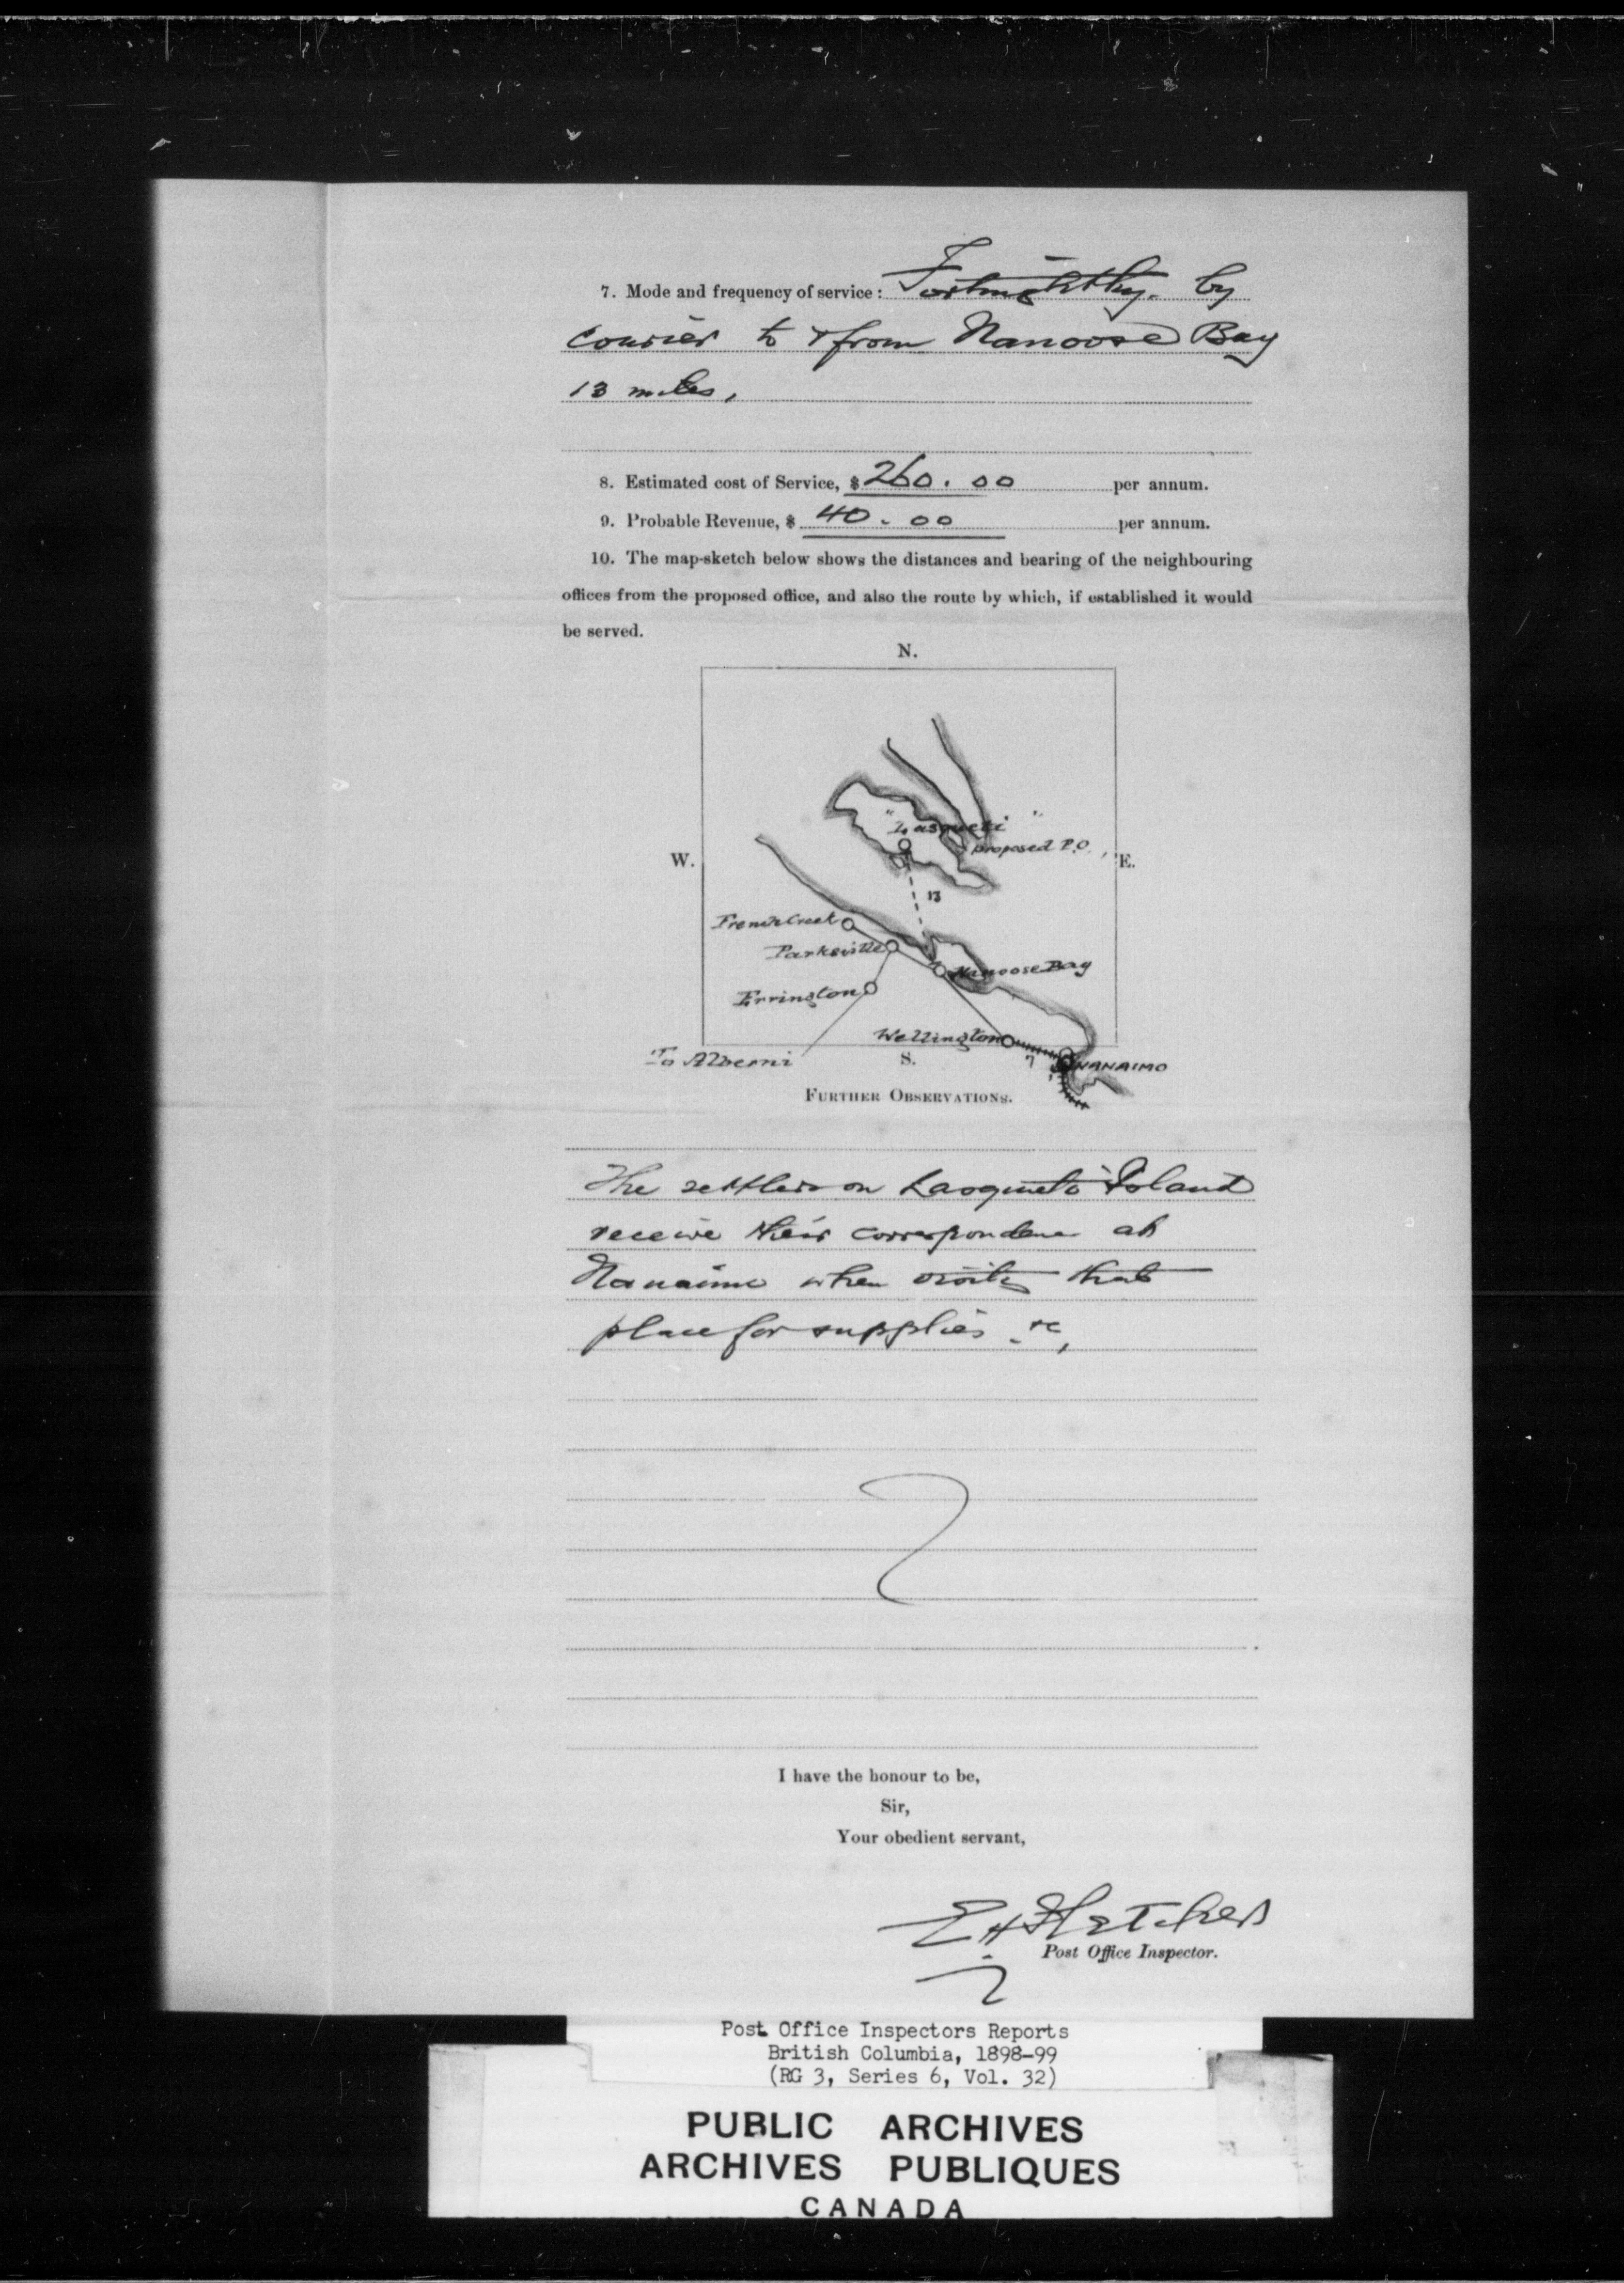 7. Mode and frequency of service: Fortnightly. by
courier to & from Nanoose Bay
13 miles,
8. Estimated cost of Service, $ 260.00 per annum.
9. Probable Revenue, $ 40.00 per annum.
10. The map-sketch below shows the distances and bearing of the neighbouring
offices from the proposed office, and also the route by which, if established it would
be served.
N.
"Lasqueti"
proposed P.O.
W.
E.
13
French Creek
Parksville
Nanoose Bay
Errington
Wellington
To Alberni
S.
7
NANAIMO
FURTHER OBSERVATIONS.
The settlers on Lasqueti Island
receive their correspondence at
Nanaimo when visiting that
place for supplies &c,
I have the honour to be,
Sir,
Your obedient servant,
E H Fletcher
Post Office Inspector.
Post Office Inspectors Reports
British Columbia, 1898-99
(RG 3, Series 6, Vol. 32)
PUBLIC ARCHIVES
ARCHIVES PUBLIQUES
CANADA